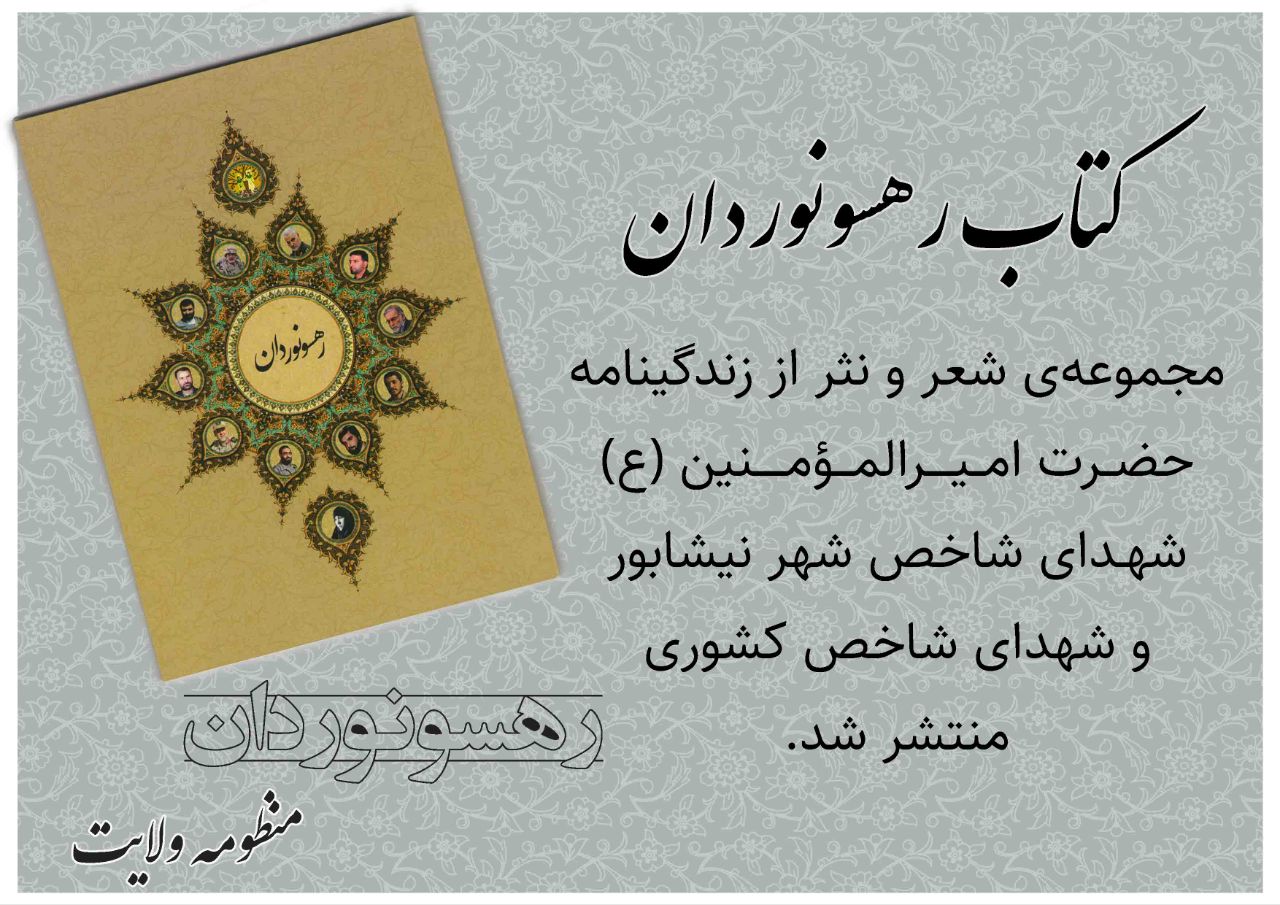 کتاب رهسونوردان
مجموعه‌ی شعر و نثر از زندگینامه
حضرت امیرالمؤمنین (ع)
شهدای شاخص شهر نیشابور
و شهدای شاخص کشوری
منتشر شد.
رهسونوردان
رهسونوردان
منظومه ولایت